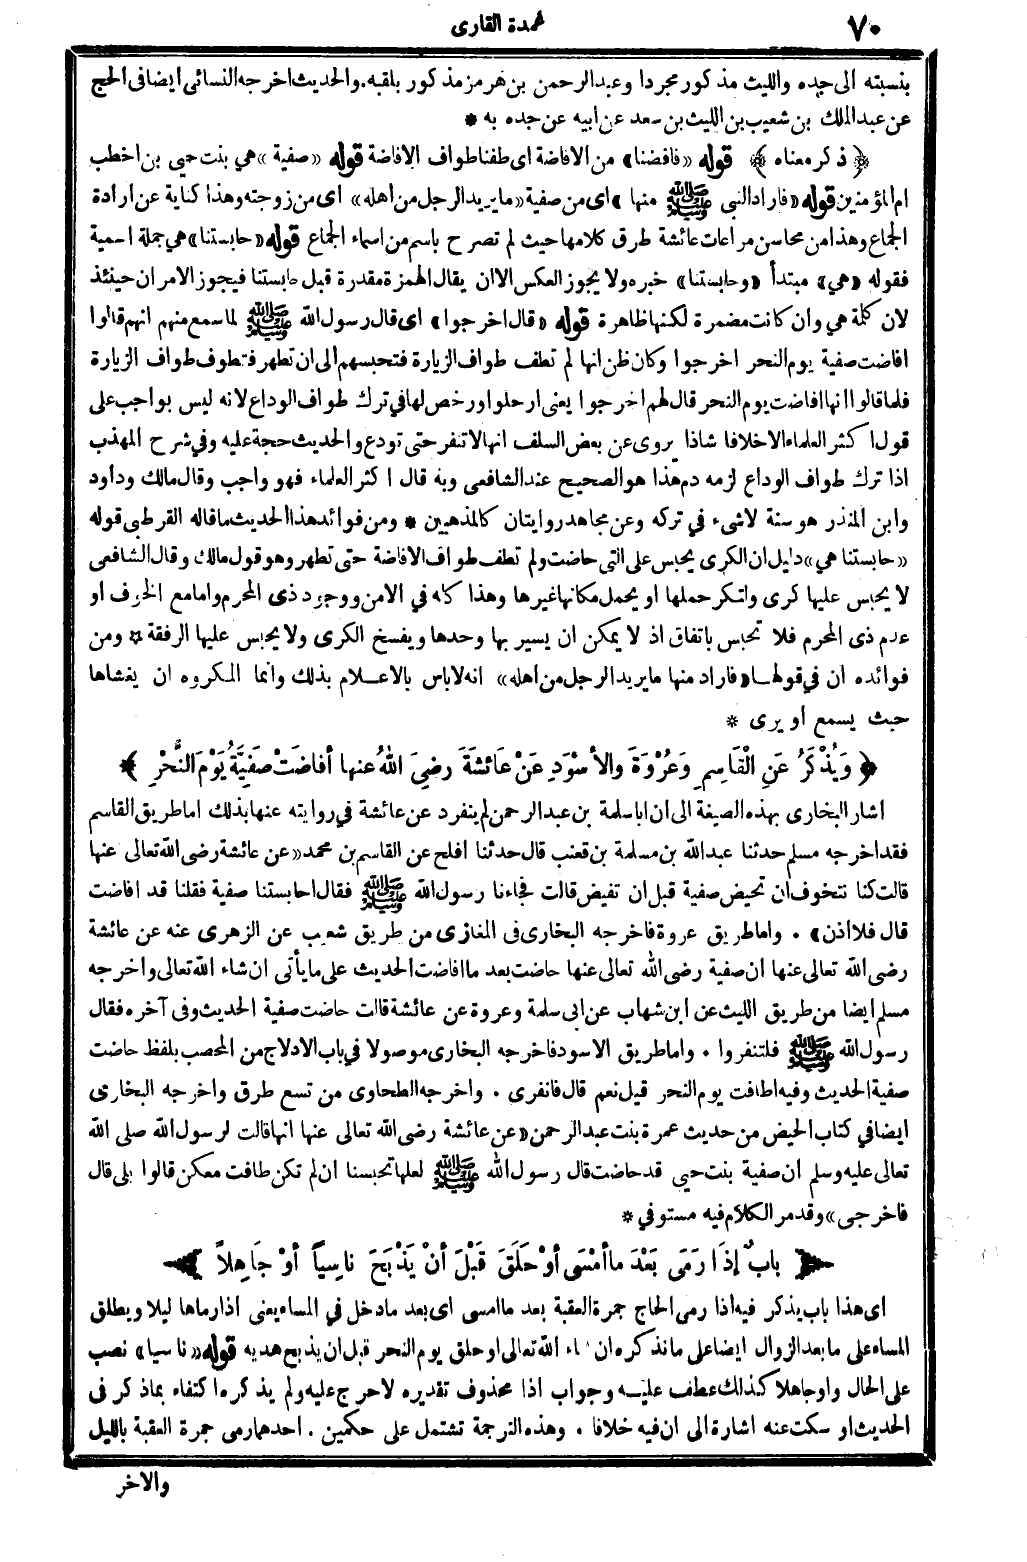 ٧٠
عمدة القارى
بنسبته الى جده والليث مذكور مجردا وعبدالرحمن بن هرمز مذكور بلقبه . والحديث اخرجه النسائى ايضا فى الحج
عن عبدالملك بن شعيب بن الليث بن سعد عن ابيه عن جده به *
﴿ ذكر معناه ﴾ قوله «فافضنا» من الافاضة اى طفنا طواف الافاضة قوله «صفية» هى بنت حيى بن اخطب
ام المؤمنين قوله «فاراد النبى ﷺ منها» اى من صفية «مايريد الرجل من اهله» اى من زوجته وهذا كناية عن ارادة
الجماع وهذا من محاسن مراعات عائشة طرق كلامها حيث لم تصرح باسم من اسماء الجماع قوله «حابستنا» هى جملة اسمية
فقوله «هى» مبتدأ «وحابستنا» خبره ولا يجوز العكس الا ان يقال الهمزة مقدرة قبل حابستنا فيجوز الامران حينئذ
لان كلمة هى وان كانت مضمرة لكنها ظاهرة قوله «قال اخرجوا» اى قال رسول الله ﷺ لما سمع منهم انهم قالوا
افاضت صفية يوم النحر اخرجوا وكان ظن انها لم تطف طواف الزيارة فتحبسهم الى ان تطهر فتطوف طواف الزيارة
فلما قالوا انها افاضت يوم النحر قال لهم اخرجوا يعنى ارحلوا ورخص لها فى ترك طواف الوداع لانه ليس بواجب على
قول اكثر العلماء الاخلافا شاذا يروى عن بعض السلف انها لا تنفر حتى تودع والحديث حجة عليه وفى شرح المهذب
اذا ترك طواف الوداع لزمه دم هذا هو الصحيح عند الشافعى وبه قال اكثر العلماء فهو واجب وقال مالك وداود
وابن المنذر هو سنة لاشىء فى تركه وعن مجاهد روايتان كالمذهبين * ومن فوائد هذا الحديث ما قاله القرطبى قوله
«حابستنا هى» دليل ان الكرى يحبس على التى حاضت ولم تطف طواف الافاضة حتى تطهر وهو قول مالك وقال الشافعى
لا يحبس عليها كرى ولتكر حملها او يحمل مكانها غيرها وهذا كله فى الامن ووجود ذى المحرم وامامع الخوف او
عدم ذى المحرم فلا تحبس باتفاق اذ لا يمكن ان يسير بها وحدها ويفسخ الكرى ولا يحبس عليها الرفقة * ومن
فوائده ان فى قولها «فاراد منها مايريد الرجل من اهله» انه لاباس بالاعلام بذلك وانما المكروه ان يغشاها
حيث يسمع او يرى *
﴿ وَيُذْكَرُ عَنِ الْقَاسِمِ وَعُرْوَةَ والأَسْوَدِ عَنْ عَائشَةَ رضىَ اللهُ عنها أفاضَتْ صَفِيَّةُ يَوْمَ النَّحْرِ ﴾
اشار البخارى بهذه الصيغة الى ان اباسلمة بن عبدالرحمن لم ينفرد عن عائشة فى روايته عنها بذلك اما طريق القاسم
فقد اخرجه مسلم حدثنا عبدالله بن مسلمة بن قعنب قال حدثنا أفلح عن القاسم بن محمد «عن عائشة رضى الله تعالى عنها
قالت كنا نتخوف ان تحيض صفية قبل ان تفيض قالت فجاءنا رسول الله ﷺ فقال احابستنا صفية فقلنا قد افاضت
قال فلا اذن» . واما طريق عروة فاخرجه البخارى فى المغازى من طريق شعيب عن الزهرى عنه عن عائشة
رضى الله تعالى عنها ان صفية رضى الله تعالى عنها حاضت بعد ما افاضت الحديث على مايأتى ان شاء الله تعالى واخرجه
مسلم ايضا من طريق الليث عن ابن شهاب عن ابى سلمة وعروة عن عائشة قالت حاضت صفية الحديث وفى آخره فقال
رسول الله ﷺ فلتنفروا . واما طريق الاسود فاخرجه البخارى موصولا فى باب الادلاج من المحصب بلفظ حاضت
صفية الحديث وفيه اطافت يوم النحر قيل نعم قال فانفرى . واخرجه الطحاوى من تسع طرق واخرجه البخارى
ايضا فى كتاب الحيض من حديث عمرة بنت عبدالرحمن «عن عائشة رضى الله تعالى عنها انها قالت لرسول الله صلى الله
تعالى عليه وسلم ان صفية بنت حيى قد حاضت قال رسول الله ﷺ لعلها تحبسنا ان لم تكن طافت معكن قالوا بلى قال
فاخرجى» وقد مر الكلام فيه مستوفى *
﴿ بابٌ إذَا رَمَى بَعْدَ ما أمْسَى أوْ حَلَقَ قَبْلَ أنْ يَذْبَحَ ناسِياً أوْ جَاهِلاً ﴾
اى هذا باب يذكر فيه اذا رمى الحاج جمرة العقبة بعد ما امسى اى بعد ما دخل فى المساء يعنى اذا رماها ليلا ويطلق
المساء على مابعد الزوال ايضا على مانذكره ان شاء الله تعالى او حلق يوم النحر قبل ان يذبح هديه قوله «ناسيا» نصب
على الحال واوجاهلا كذلك عطف عليه وجواب اذا محذوف تقديره لاحرج عليه ولم يذكره اكتفاء بماذكر فى
الحديث او سكت عنه اشارة الى ان فيه خلافا . وهذه الترجمة تشتمل على حكمين . احدهما رمى جمرة العقبة بالليل
والاخر